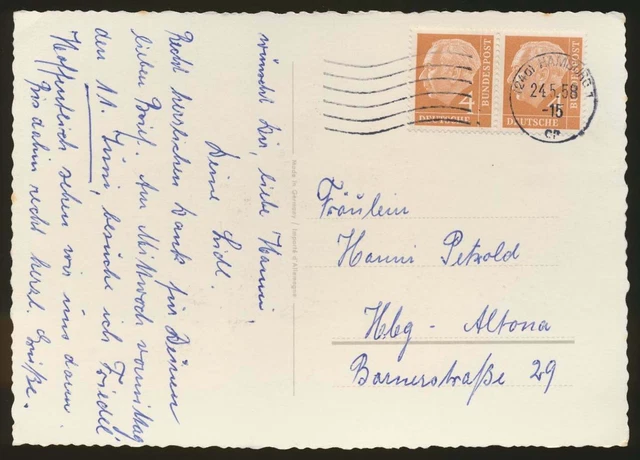 wünscht Dir, liebe Hanni,
Deine Lidl.
Recht herzlichen Dank für Deinen
lieben Brief. Am Mittwoch vormittag
den 11. Juni, besuche ich Friedel.
Hoffentlich sehen wir uns dann.
Bis dahin recht herzl. Grüße.
Made in Germany / Importé d'Allemagne
4
DEUTSCHE
BUNDESPOST
DEUTSCHE
BUNDESPOST
(24a) HAMBURG 1
24.5.58
-15
cp
Fräulein
Hanni Petzold
Hbg - Altona
Barnerstraße 29